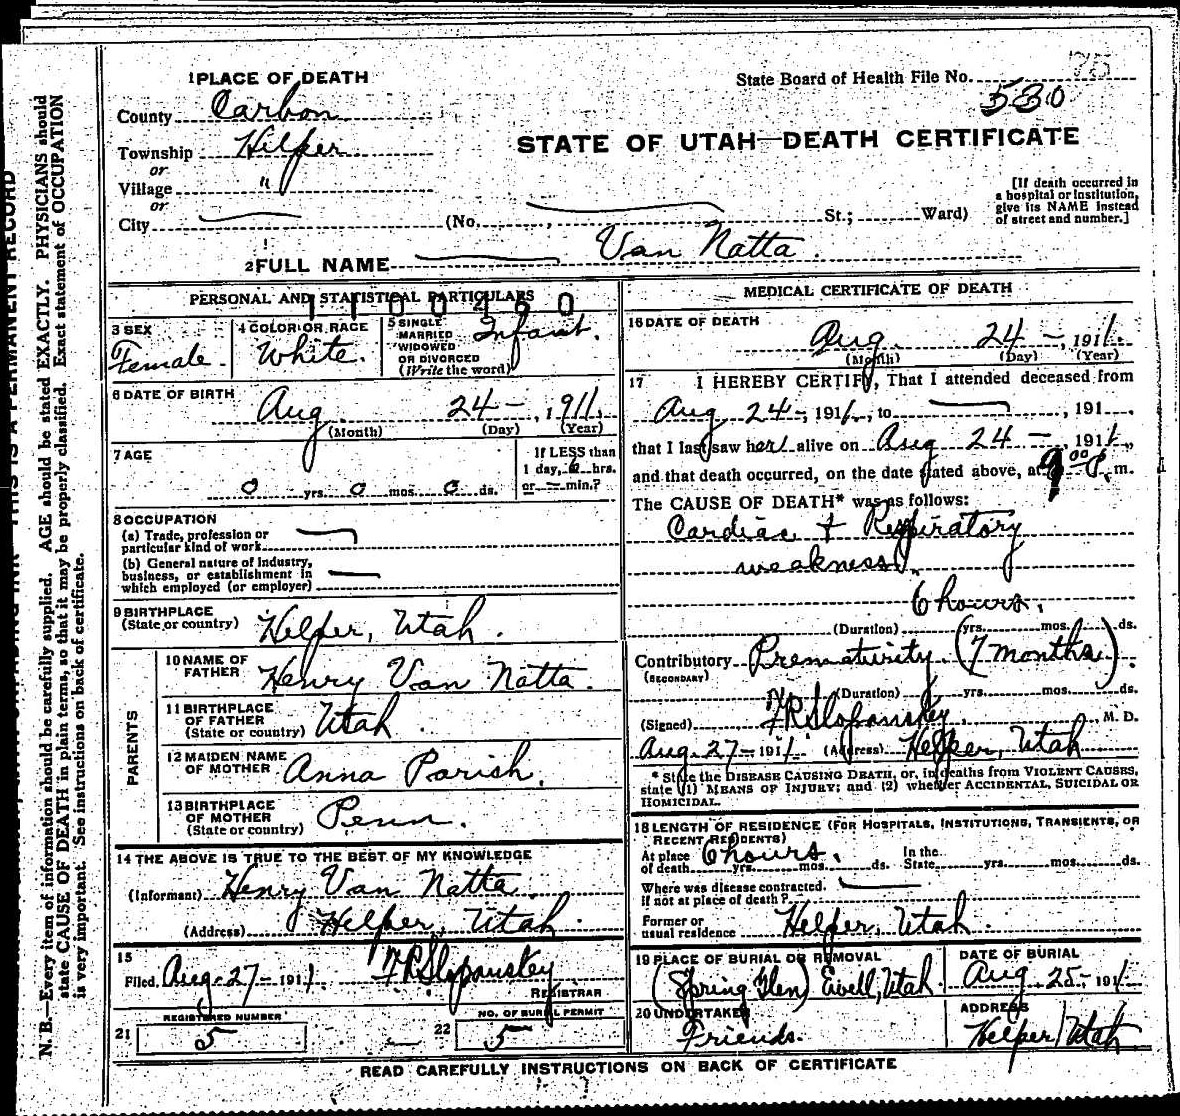 1 PLACE OF DEATH
State Board of Health File No.
County Carbon
530
Township Helper
STATE OF UTAH—DEATH CERTIFICATE
or
Village "
or
City (No. St.; Ward)
[If death occurred in
a hospital or institution,
give its NAME instead
of street and number.]
2 FULL NAME Van Natta
PERSONAL AND STATISTICAL PARTICULARS
1100460
3 SEX
Female
4 COLOR OR RACE
White.
5 SINGLE
MARRIED
WIDOWED
OR DIVORCED
(Write the word)
Infant.
6 DATE OF BIRTH
Aug 24 – , 1911.
(Month) (Day) (Year)
7 AGE
0 yrs. 0 mos. 0 ds.
If LESS than
1 day, 6 hrs.
or — min.?
8 OCCUPATION
(a) Trade, profession or
particular kind of work
(b) General nature of industry,
business, or establishment in
which employed (or employer)
9 BIRTHPLACE
(State or country) Helper, Utah.
PARENTS
10 NAME OF
FATHER Henry Van Natta.
11 BIRTHPLACE
OF FATHER
(State or country) Utah.
12 MAIDEN NAME
OF MOTHER Anna Parish.
13 BIRTHPLACE
OF MOTHER
(State or country) Penn.
14 THE ABOVE IS TRUE TO THE BEST OF MY KNOWLEDGE
(Informant) Henry Van Natta
(Address) Helper, Utah.
15
Filed Aug. 27 – 1911. F.R. Slopanskey
REGISTRAR
21 REGISTERED NUMBER
5
22 NO. OF BURIAL PERMIT
5
MEDICAL CERTIFICATE OF DEATH
16 DATE OF DEATH
Aug. 24 – , 1911.
(Month) (Day) (Year)
17 I HEREBY CERTIFY, That I attended deceased from
Aug 24 –, 1911, to , 191
that I last saw her alive on Aug 24 – , 1911,
and that death occurred, on the date stated above, at 9 00 P. m.
The CAUSE OF DEATH* was as follows:
Cardiac + Respiratory
weakness.
6 hours.
(Duration) yrs. mos. ds.
Contributory Prematurity. (7 months).
(SECONDARY)
(Duration) yrs. mos. ds.
(Signed) F.R. Slopanskey. M. D.
Aug. 27 – 1911. (Address) Helper, Utah
* State the DISEASE CAUSING DEATH, or, in deaths from VIOLENT CAUSES,
state (1) MEANS OF INJURY; and (2) whether ACCIDENTAL, SUICIDAL OR
HOMICIDAL.
18 LENGTH OF RESIDENCE (FOR HOSPITALS, INSTITUTIONS, TRANSIENTS, OR
RECENT RESIDENTS)
At place
of death 6 hours. yrs. mos. ds. In the
State yrs. mos. ds.
Where was disease contracted,
if not at place of death?
Former or
usual residence Helper, Utah.
19 PLACE OF BURIAL OR REMOVAL
(Spring Glen) Ewell, Utah.
DATE OF BURIAL
Aug 25 – 1911
20 UNDERTAKER
Friends.
ADDRESS
Helper, Utah
READ CAREFULLY INSTRUCTIONS ON BACK OF CERTIFICATE
THIS IS A PERMANENT RECORD
N. B.—Every item of information should be carefully supplied. AGE should be stated EXACTLY. PHYSICIANS should
state CAUSE OF DEATH in plain terms, so that it may be properly classified. Exact statement of OCCUPATION
is very important. See instructions on back of certificate.